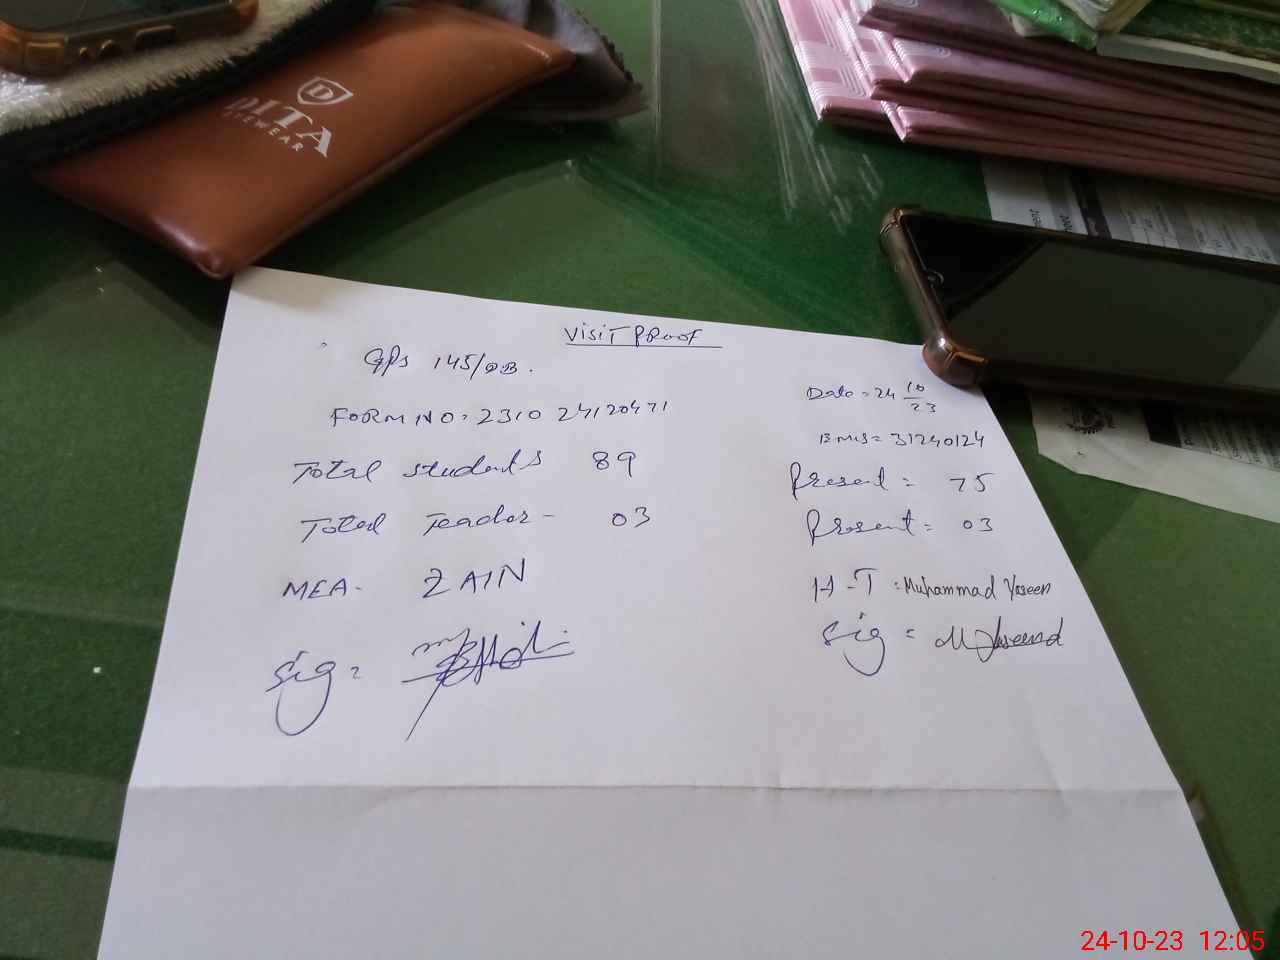 DITA
EYEWEAR
Visit Proof
GPS 145/DB.
Date = 24 10/23
FORM NO: 2310 24120471
EMIS = 31240124
Total students 89
Present = 75
Total Teacher - 03
Present = 03
MEA - ZAIN
H-T : Muhammad Yaseen
Sig =
Sig =
24-10-23 12:05